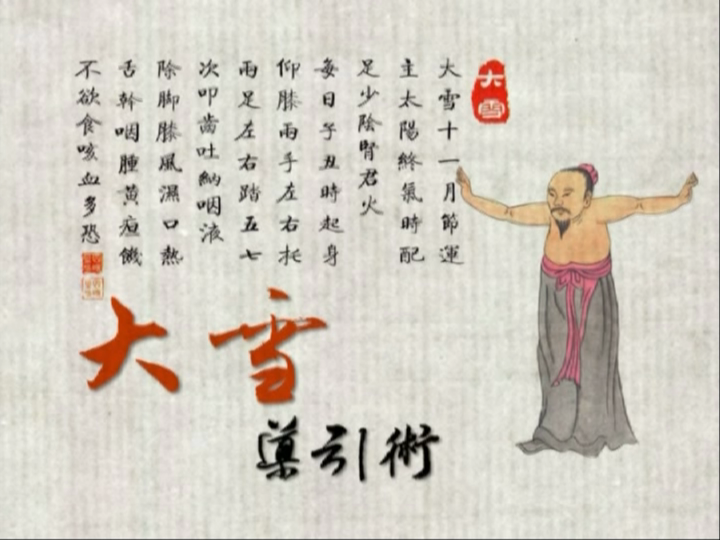 大雪
大雪十一月節運
主太陽終氣時配
足少陰腎君火
每日子丑時起身
仰膝兩手左右托
兩足左右踏五七
次叩齒吐納咽液
除脚膝風濕口熱
舌幹咽腫黃疸饑
不欲食咳血多恐
大雪
導引術